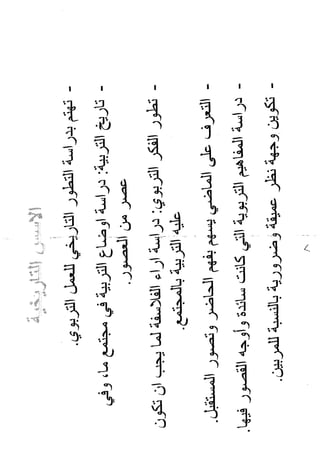 الاسس التاريخية
- تهتم بدراسة التطور التاريخي للعمل التربوي.
- تاريخ التربية: دراسة اوضاع التربية في مجتمع ما، وفي
عصر من العصور.
- تطور الفكر التربوي: دراسة اراء الفلاسفة لما يجب ان تكون
عليه التربية بالمجتمع.
- التعرف على الماضي يسهم بفهم الحاضر وتصور المستقبل.
- دراسة المفاهيم التربوية التي كانت سائدة وأوجه القصور فيها.
- تكوين وجهة نظر عميقة وضرورية بالنسبة للمربين.
٨